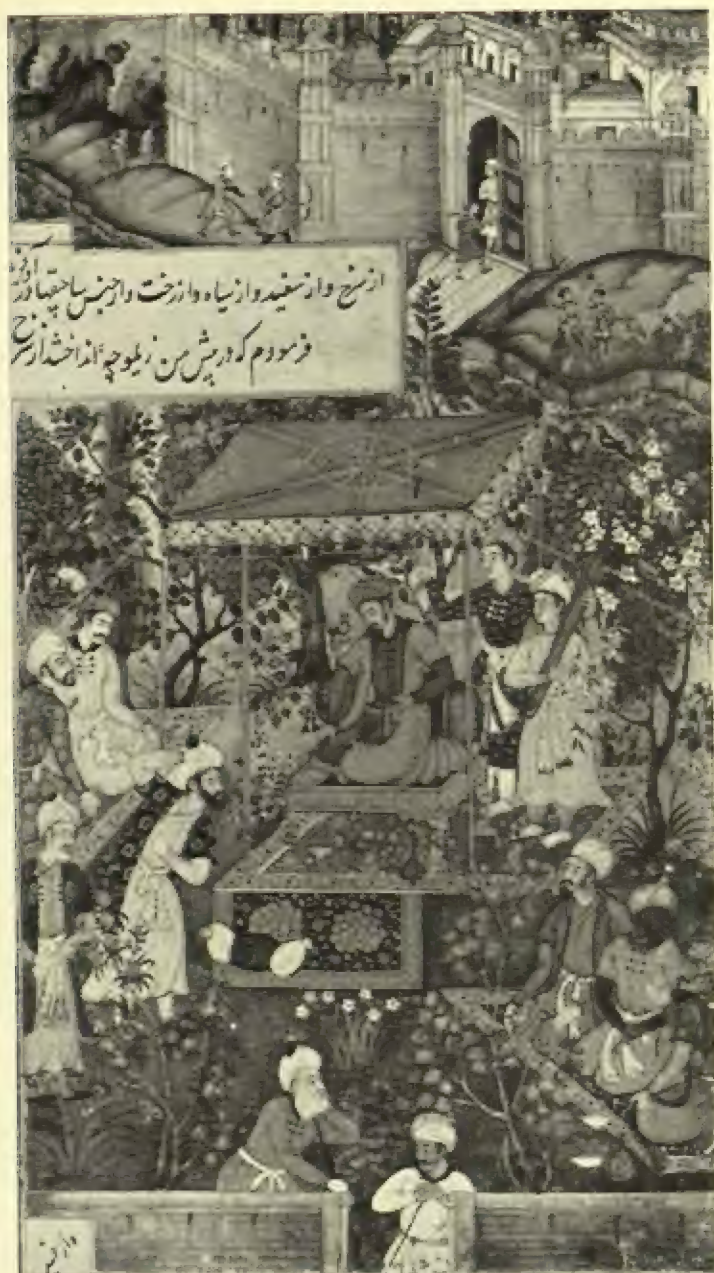 از سرخ و از سفید و از سیاه و از رخت و از جنس ساچقها آورده
فرمودم که در پیش من زیلوچه انداختند از سرخ
واز جنس